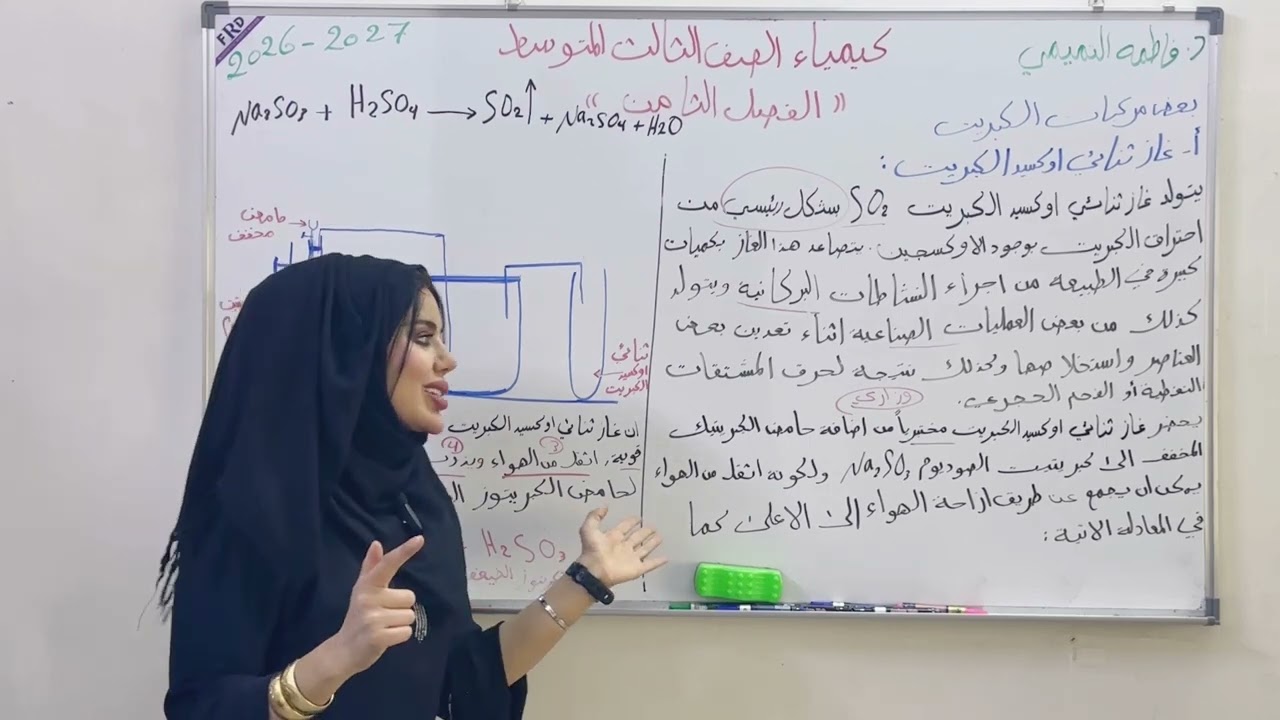 د. فاطمه التميمي
كيمياء الصف الثالث المتوسط
2026-2027
FRD
"الفصل الثامن"
Na2SO3 + H2SO4 → SO2↑ + Na2SO4 + H2O
بعض مركبات الكبريت
أ- غاز ثنائي اوكسيد الكبريت :
يتولد غاز ثنائي اوكسيد الكبريت SO2 بشكل رئيسي من
احتراق الكبريت بوجود الاوكسجين. يتصاعد هذا الغاز بكميات
كبيرة في الطبيعه من اجراء النشاطات البركانية ويتولد
كذلك من بعض العمليات الصناعيه اثناء تعدين بعض
العناصر واستخلاصها وكذلك نتيجه لحرق المشتقات
النفطية أو الفحم الحجري.
وزاري
يحضر غاز ثنائي اوكسيد الكبريت مختبرياً من اضافة حامض الكبريتيك
المخفف الى كبريتيت الصوديوم Na2SO3 ولكونه اثقل من الهواء
يمكن ان يجمع عن طريق ازاحة الهواء إلى الاعلى كما
في المعادلة الاتية :
حامض
مخفف
ثنائي
اوكسيد
الكبريت
ان غاز ثنائي اوكسيد الكبريت
3 4
قوية، اثقل من الهواء
لحامض الكبريتوز
H2SO3